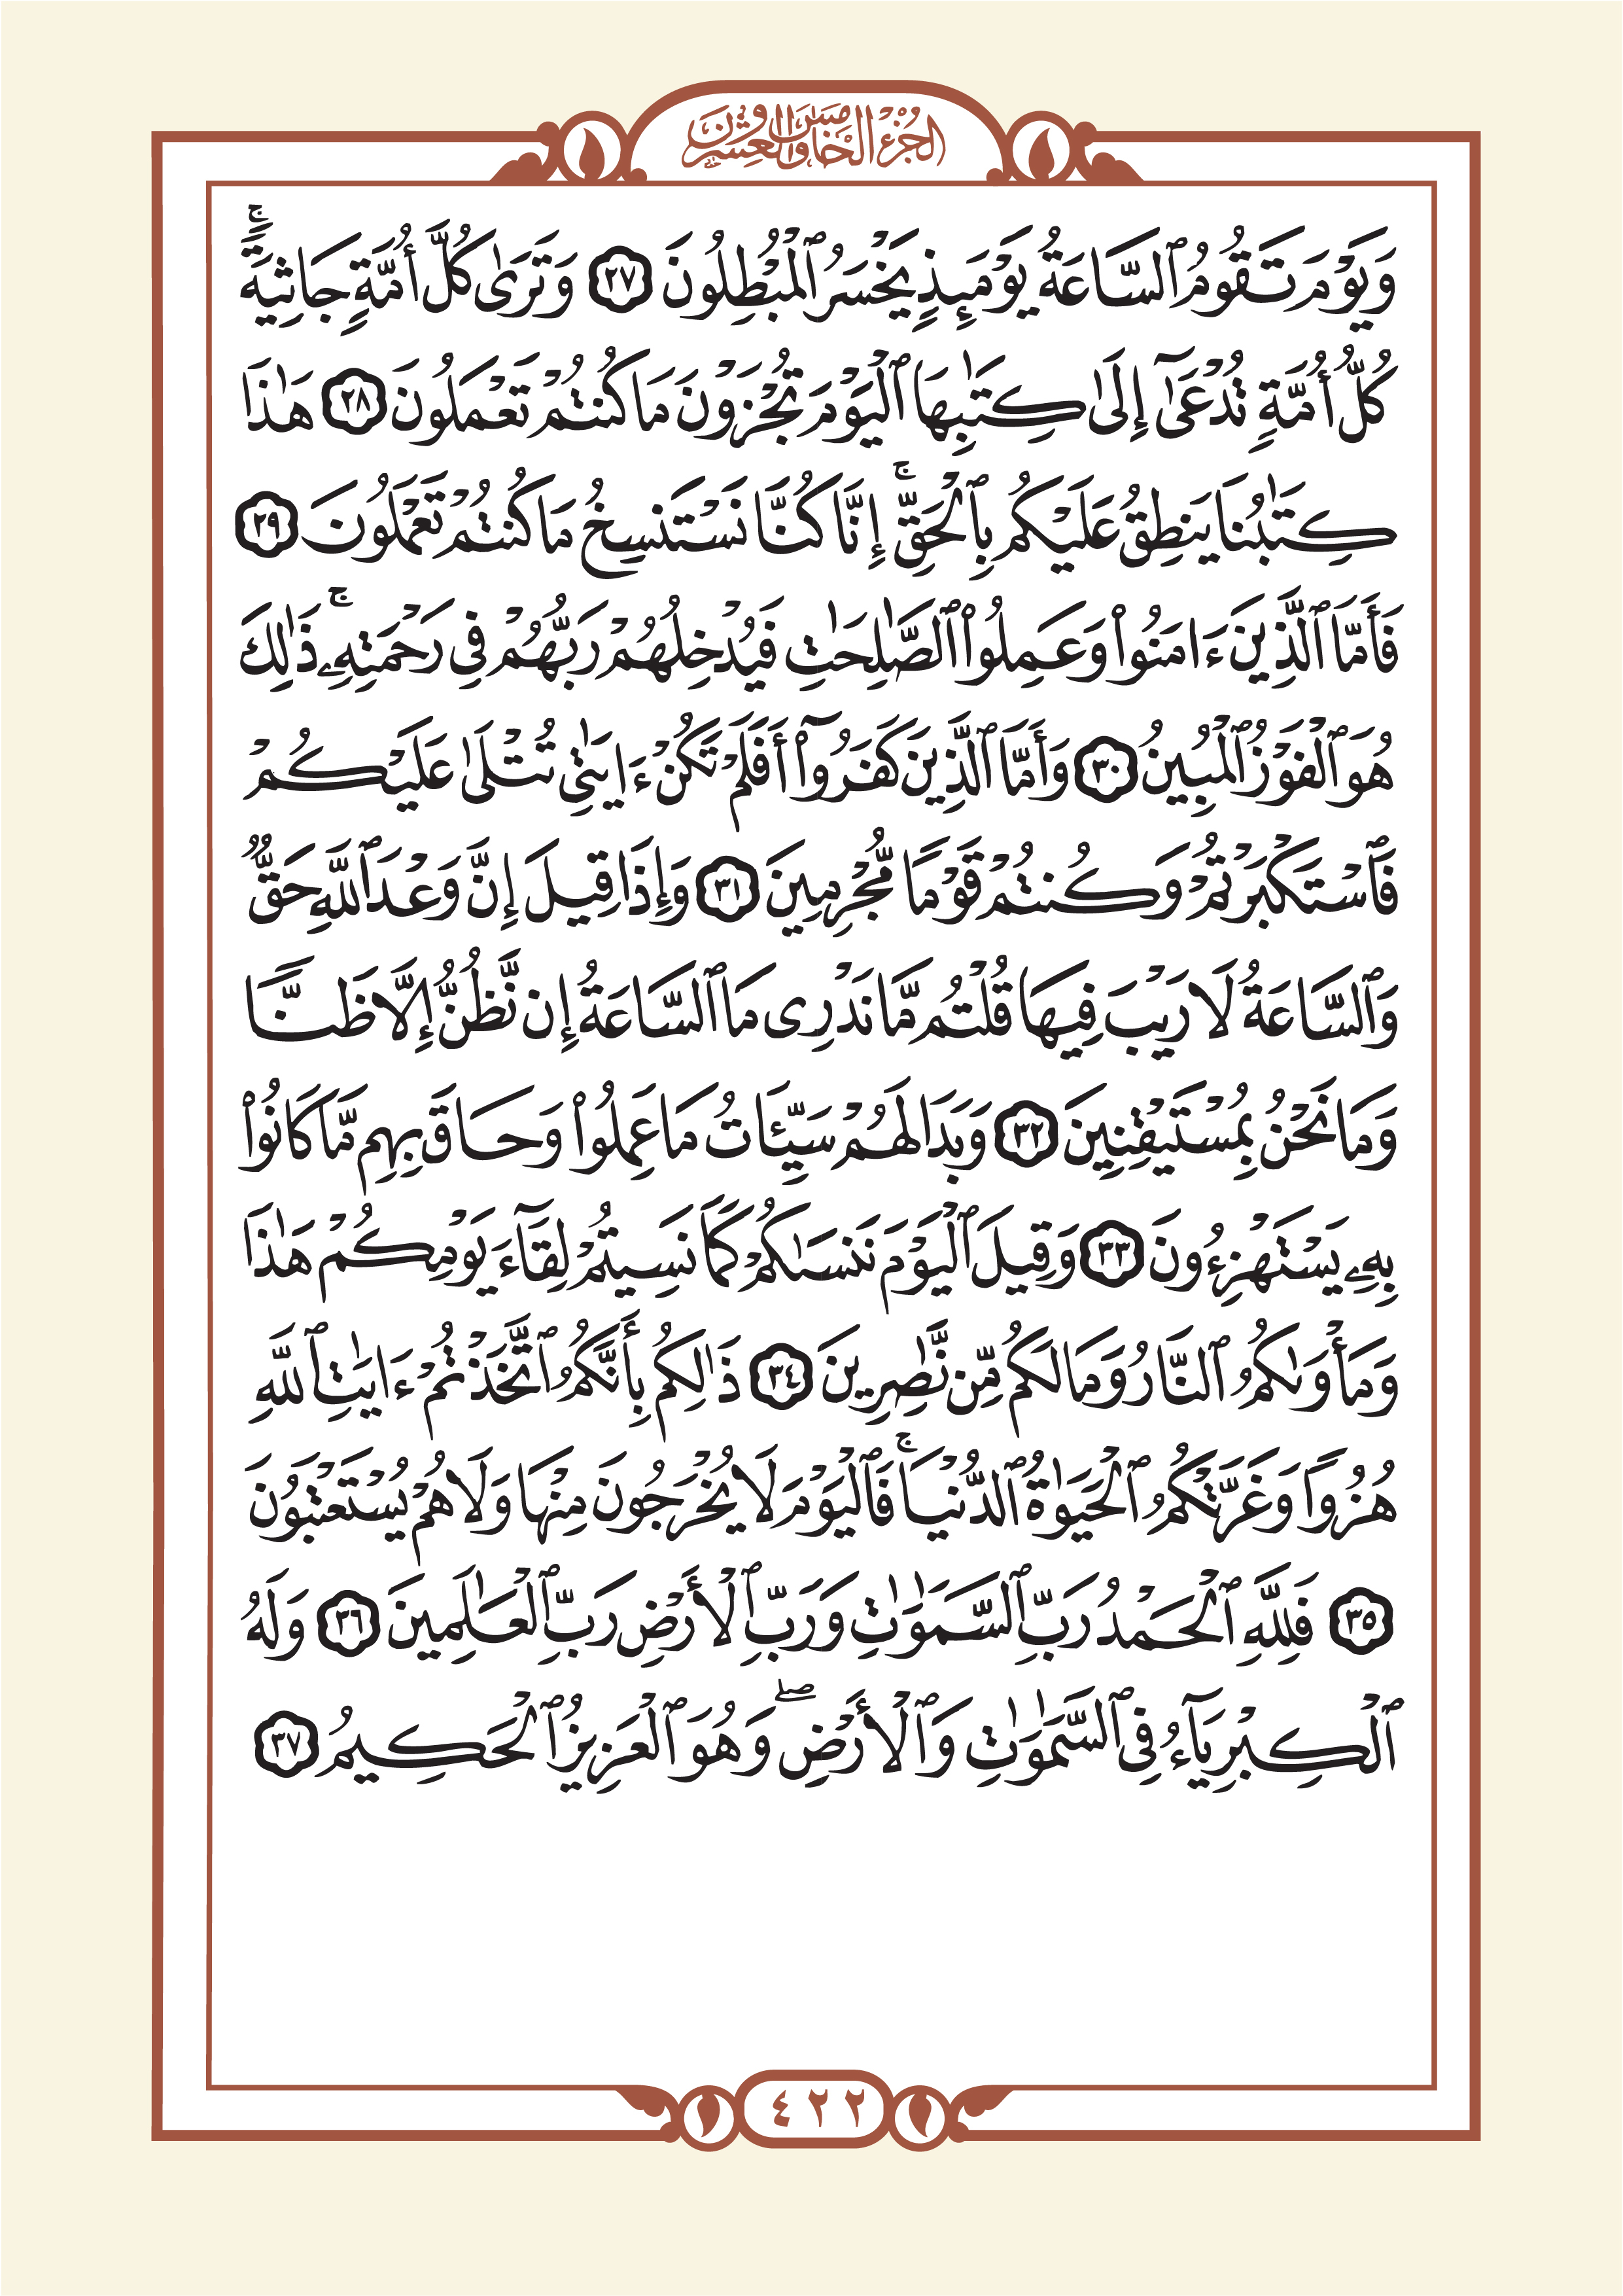 الجزء الخامس والعشرون
وَيَوْمَ تَقُومُ ٱلسَّاعَةُ يَوْمَئِذٍ يَخْسَرُ ٱلْمُبْطِلُونَ ٢٧ وَتَرَىٰ كُلَّ أُمَّةٍ جَاثِيَةً ۚ
كُلُّ أُمَّةٍ تُدْعَىٰٓ إِلَىٰ كِتَٰبِهَا ٱلْيَوْمَ تُجْزَوْنَ مَا كُنتُمْ تَعْمَلُونَ ٢٨ هَٰذَا
كِتَٰبُنَا يَنطِقُ عَلَيْكُم بِٱلْحَقِّ ۚ إِنَّا كُنَّا نَسْتَنسِخُ مَا كُنتُمْ تَعْمَلُونَ ٢٩
فَأَمَّا ٱلَّذِينَ ءَامَنُوا۟ وَعَمِلُوا۟ ٱلصَّٰلِحَٰتِ فَيُدْخِلُهُمْ رَبُّهُمْ فِى رَحْمَتِهِۦ ۚ ذَٰلِكَ
هُوَ ٱلْفَوْزُ ٱلْمُبِينُ ٣٠ وَأَمَّا ٱلَّذِينَ كَفَرُوٓا۟ أَفَلَمْ تَكُنْ ءَايَٰتِى تُتْلَىٰ عَلَيْكُمْ
فَٱسْتَكْبَرْتُمْ وَكُنتُمْ قَوْمًا مُّجْرِمِينَ ٣١ وَإِذَا قِيلَ إِنَّ وَعْدَ ٱللَّهِ حَقٌّ
وَٱلسَّاعَةُ لَا رَيْبَ فِيهَا قُلْتُم مَّا نَدْرِى مَا ٱلسَّاعَةُ إِن نَّظُنُّ إِلَّا ظَنًّا
وَمَا نَحْنُ بِمُسْتَيْقِنِينَ ٣٢ وَبَدَا لَهُمْ سَيِّـَٔاتُ مَا عَمِلُوا۟ وَحَاقَ بِهِم مَّا كَانُوا۟
بِهِۦ يَسْتَهْزِءُونَ ٣٣ وَقِيلَ ٱلْيَوْمَ نَنسَىٰكُمْ كَمَا نَسِيتُمْ لِقَآءَ يَوْمِكُمْ هَٰذَا
وَمَأْوَىٰكُمُ ٱلنَّارُ وَمَا لَكُم مِّن نَّٰصِرِينَ ٣٤ ذَٰلِكُم بِأَنَّكُمُ ٱتَّخَذْتُمْ ءَايَٰتِ ٱللَّهِ
هُزُوًا وَغَرَّتْكُمُ ٱلْحَيَوٰةُ ٱلدُّنْيَا ۚ فَٱلْيَوْمَ لَا يُخْرَجُونَ مِنْهَا وَلَا هُمْ يُسْتَعْتَبُونَ
٣٥ فَلِلَّهِ ٱلْحَمْدُ رَبِّ ٱلسَّمَٰوَٰتِ وَرَبِّ ٱلْأَرْضِ رَبِّ ٱلْعَٰلَمِينَ ٣٦ وَلَهُ
ٱلْكِبْرِيَآءُ فِى ٱلسَّمَٰوَٰتِ وَٱلْأَرْضِ ۖ وَهُوَ ٱلْعَزِيزُ ٱلْحَكِيمُ ٣٧
٤٢٢